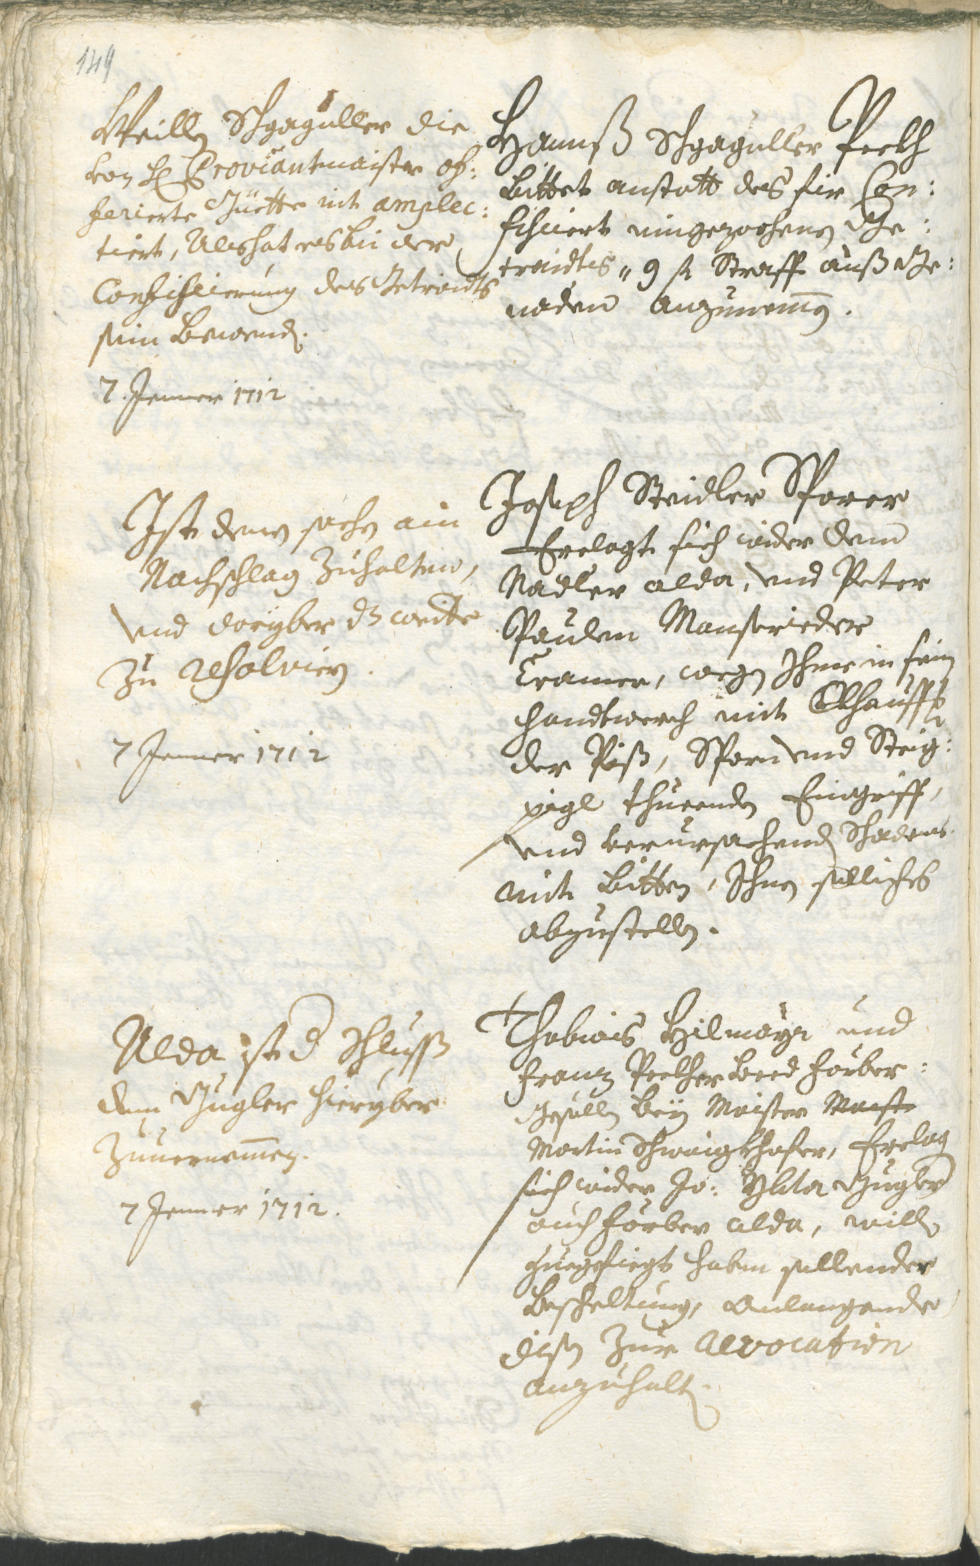 149
Weillen Schgaguller die
von H: Proviantmaister of:
ferierte Güette nit amplec:
tiert, Als hat es bei der
Confiscierung des Getraidts
sein Bewend.
7. Jenner 1712
Hannß Schgaguller Peckh
bittet anstatt des für Con:
fisciert eingezochenen Ge:
traidtes 9 f Straff auß Ge:
naden anzunemen.
Ist denen sachen ain
Nachschlag zuhalten,
und dariyber dz weitte
zu resolvieren.
7 Jenner 1712
Joseph Steidler Sporer
Erclagt sich wider dem
Nadler alda, und Peter
Paulen Manfrieder
Cramer, wegen Ihme in sein
handtwerch mit Erkhauffs
der Piß, Sporn und Steig:
pigl thuenden Eingriff,
und verursachend Schadens
mit bitten, Ihnen selliches
abzustellen.
Alda ist d Schluss
dem Gugler hieryber
zuvernemmen.
7 Jenner 1712.
Thobias Hilmayr und
Franz Peckher beed Färber:
Gesellen bey Maister
Martin Schwaigkhofer, Erclag
sich wider Jo: Gugler
auch Färber alda, willen
zuegefiegt haben sellender
Bescheltung, anlangender
disen zur Revocation
anzuhalten.